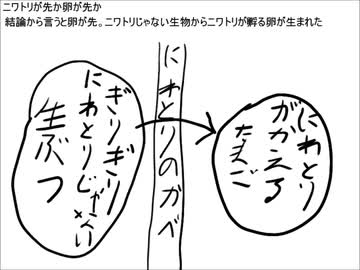 ニワトリが先か卵が先か
結論から言うと卵が先。ニワトリじゃない生物からニワトリが孵る卵が生まれた
ぎりぎり
にわとりじゃない
生ぶつ
にわとりのかべ
にわとり
がかえる
たまご